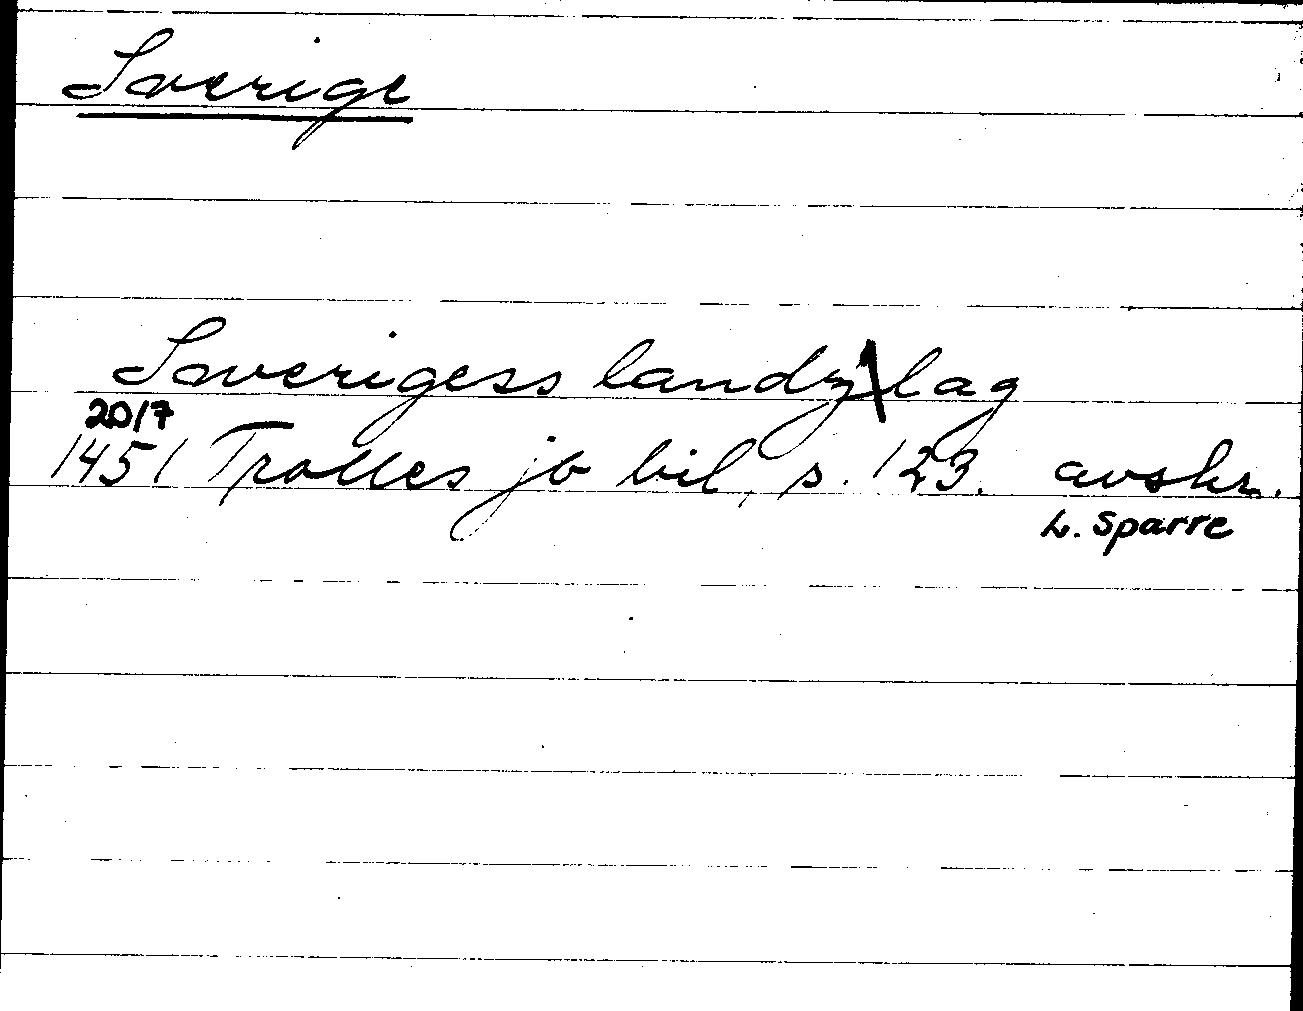 Sverige
Swerigess landz\lag
20/7
1451 Trolles jb bil, s. 123. avskr.
L. Sparre